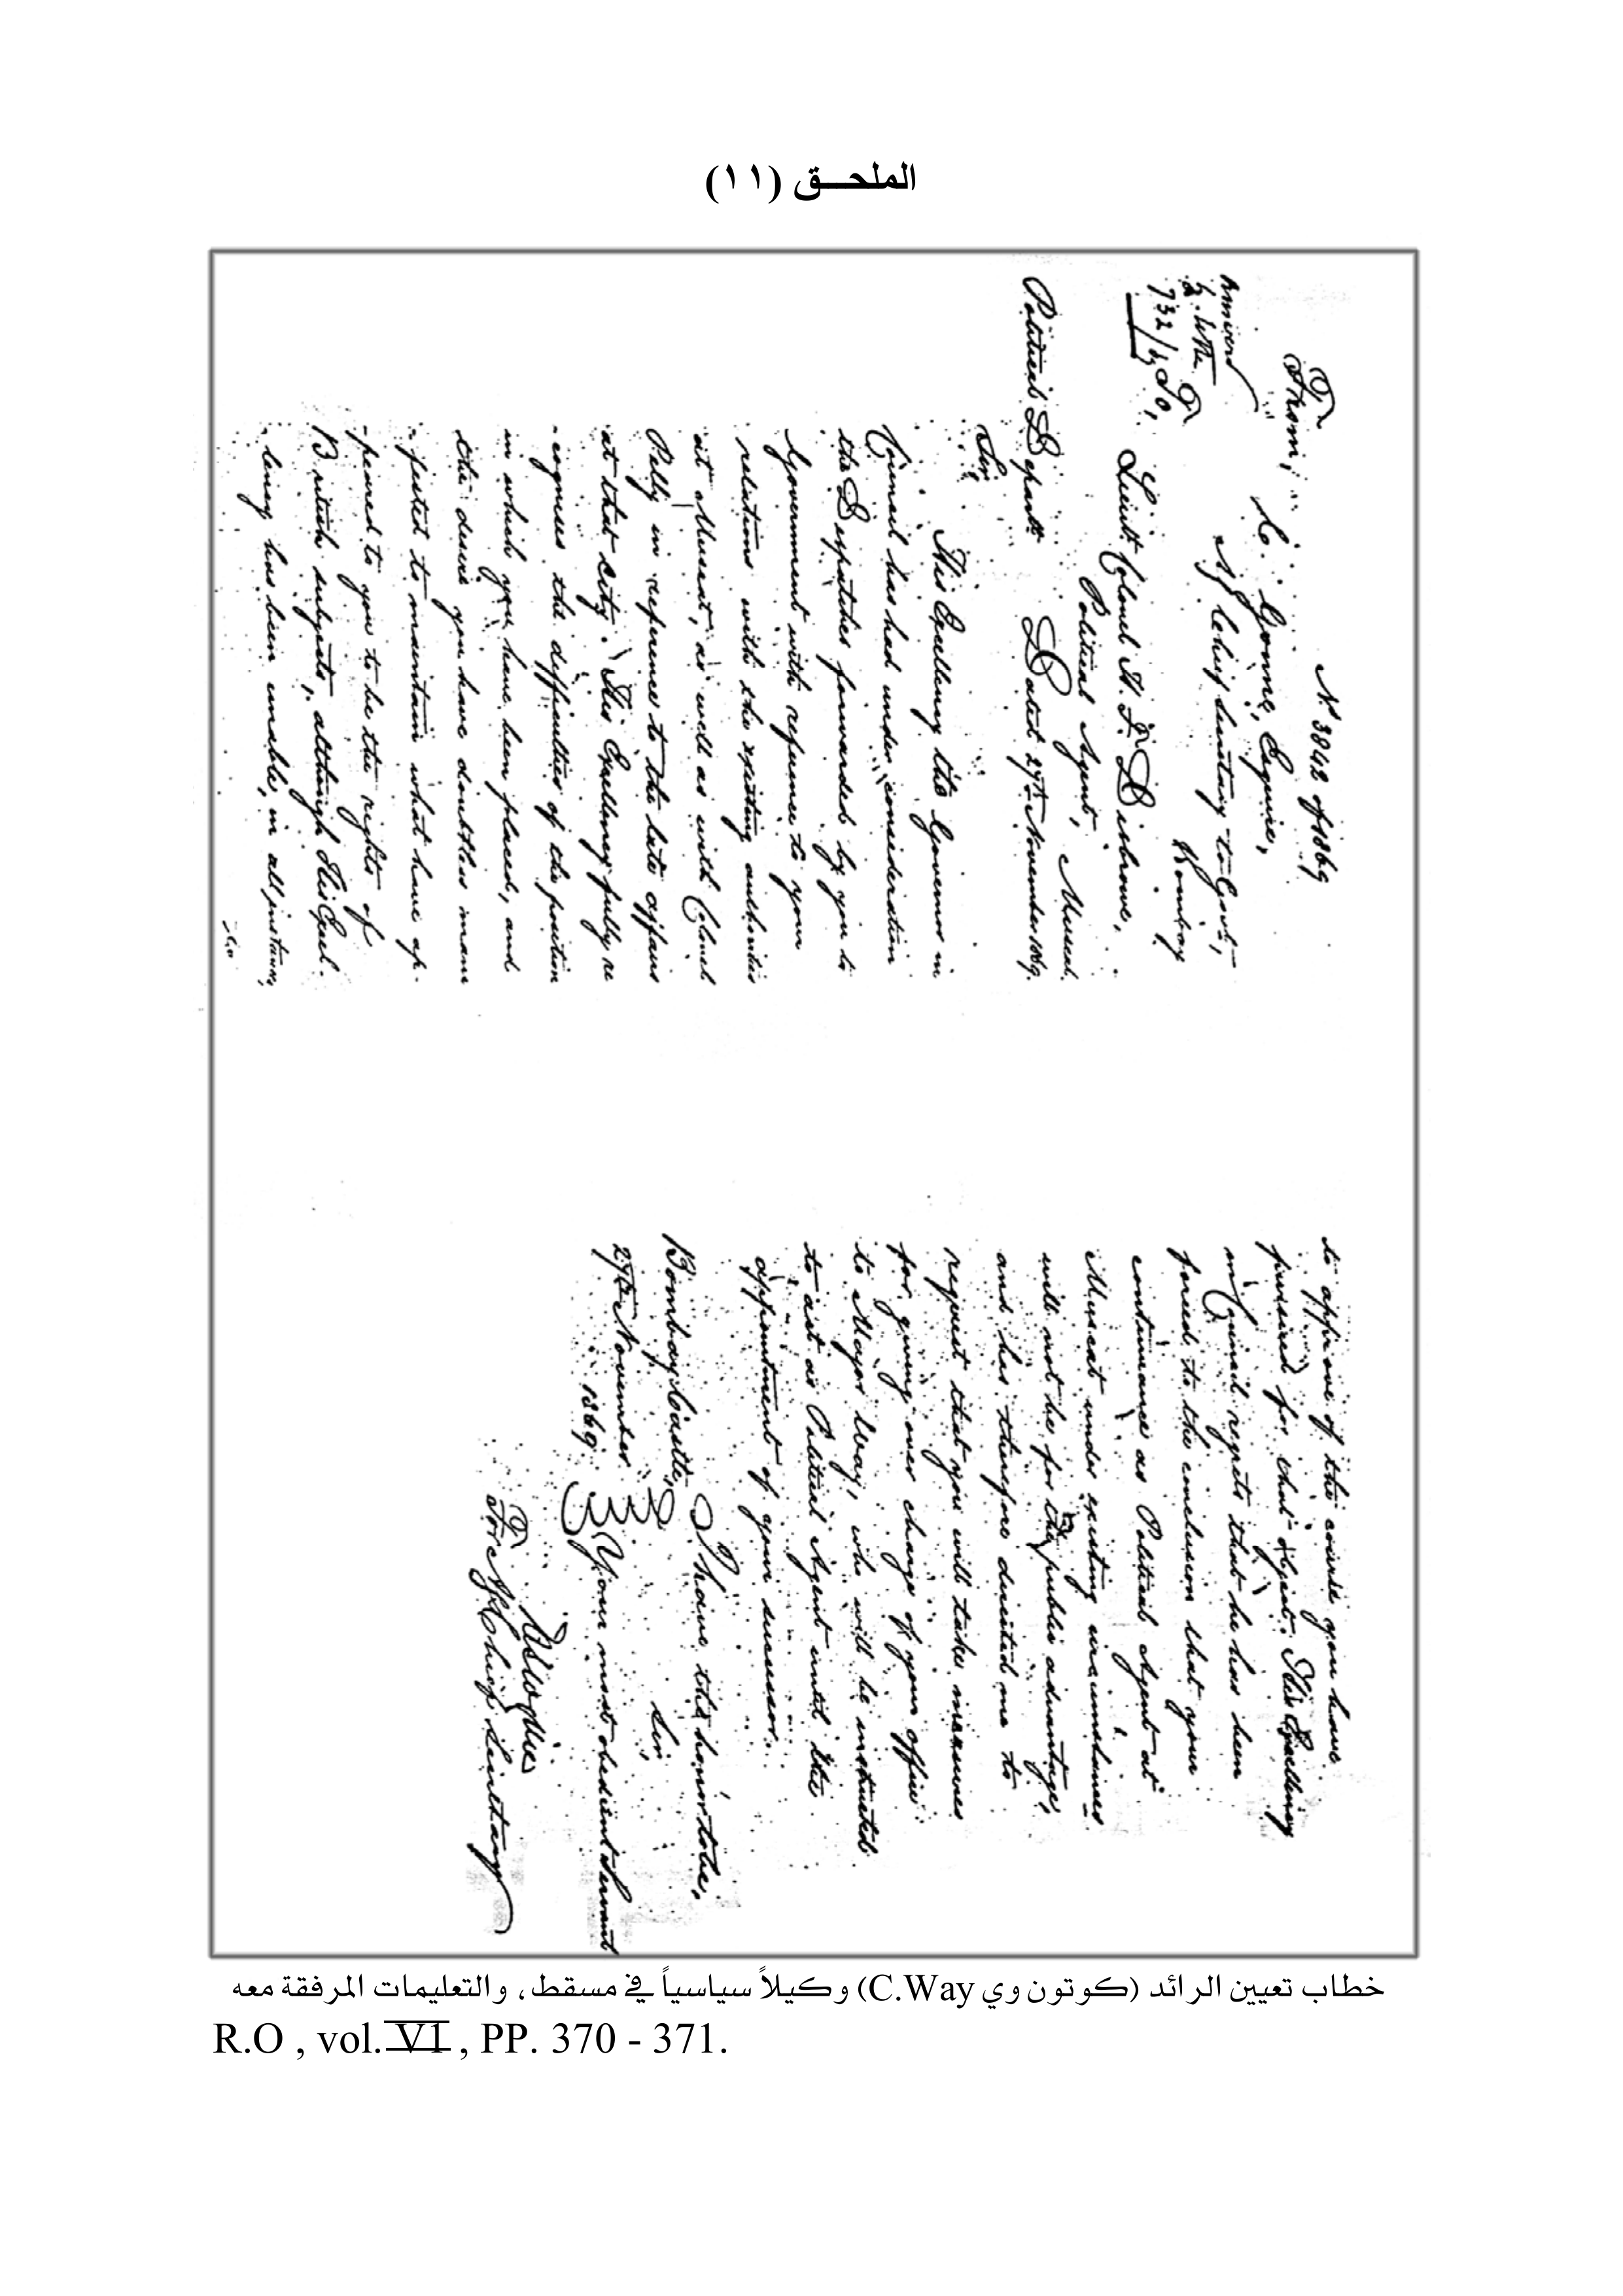 الملحـــق (١١)
No 3842 of 1869
From,
C. Gonne, Esquire,
Ag Chief Secretary to Govt,
Bombay
Answered
by letter
732/69
To,
Lieutt Colonel H. F. Disbrowe,
Political Agent, Muscat.
Political Departt Dated 27th November 1869.
Sir,
His Excellency the Governor in
Council has had under consideration
the Despatches forwarded by you to
Government with reference to your
relations with the existing authorities
at Muscat, as well as with Colonel
Pelly in reference to the late affairs
at that city. His Excellency fully re
-cognises the difficulties of the position
in which you have been placed, and
the desire you have doubtless mani
-fested to maintain what have ap-
-peared to you to be the rights of
British subjects, although His Excel-
-lency has been unable, in all instances,
to approve of the course you have
pursued for that object. His Excellency
in Council regrets that he has been
forced to the conclusion that your
continuance as Political Agent at
Muscat under existing circumstances
will not be for the public advantage,
and has therefore directed me to
request that you will take measures
for giving over charge of your office
to Major Way, who will be instructed
to act as Political Agent until the
appointment of your successor.
I have the honor to be,
Sir,
Your most obedient Servant
Bombay Castle,
27th November
1869.
For Ag Chief Secretary
خطاب تعيين الرائد (كوتون وي C.Way) وكيلاً سياسياً في مسقط، والتعليمات المرفقة معه
R.O , vol. VI , PP. 370 - 371.